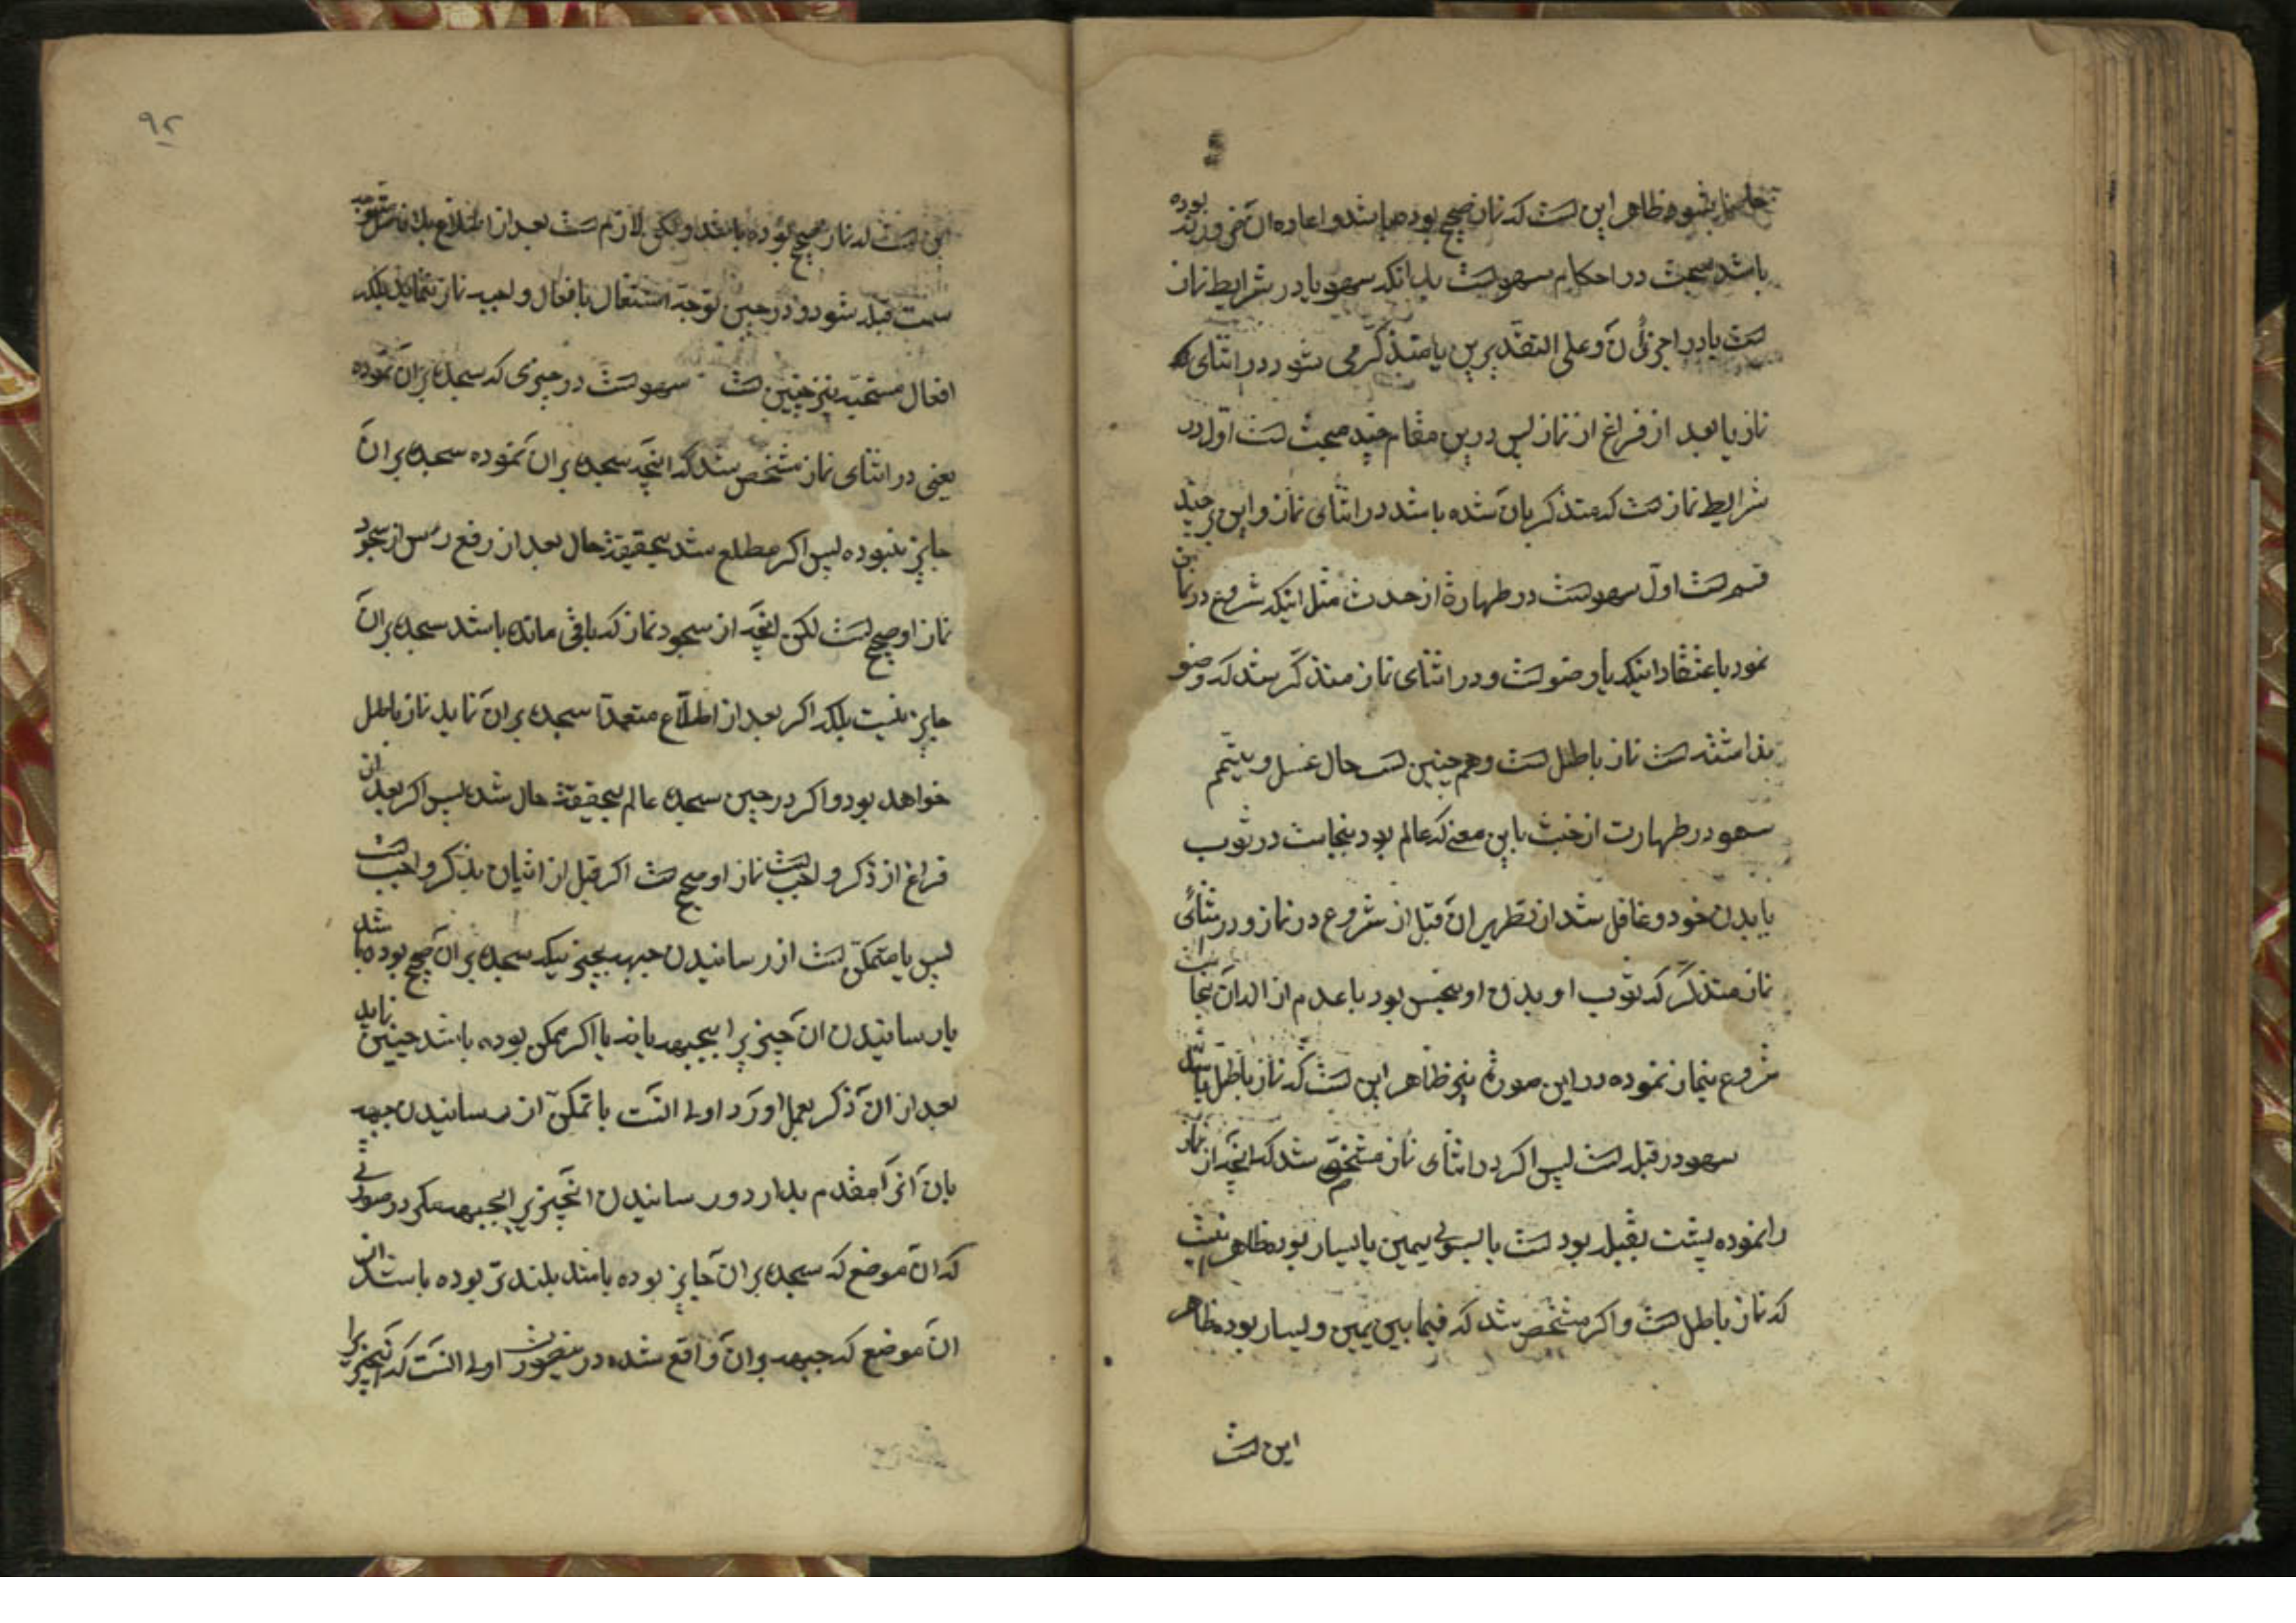 ظاهر این است که نماز صحیح بوده باشد و اعاده آن نمی ورزیده بوده
باشد مبحث در احکام سهو است بدانکه سهو یا در شرایط نماز
است یا در اجزای آن و علی التقدیرین یا متذکر می شود در اثنای
نماز یا بعد از فراغ از نماز پس درین مقام چند مبحث است اول در
شرایط نماز است که متذکر بآن شده باشد در اثنای نماز و این بر چند
قسم است اول سهو است در طهارة از حدث مثل اینکه شروع در نماز
نمود باعتقاد اینکه با وضو است و در اثنای نماز متذکر شد که وضو
نداشته است نماز باطل است و هم چنین است حال غسل و تیمم
سهو در طهارت از خبث باین معنی که عالم بود بنجاست در ثوب
یا بدن خود و غافل شد از تطهیر آن قبل از شروع در نماز و در اثنای
نماز متذکر که ثوب او بدن او نجس بود با عدم ازاله آن نجاست
شروع بنماز نموده در این صورة نیز ظاهر این است که نماز باطل باشد
سهو در قبله است پس اگر در اثنای نماز مشخص شد که آنچه از نماز
را نموده پشت بقبله بوده است یا بسوی یمین یا یسار بوده ظاهر
که نماز باطل است و اگر مشخص شد که فیما بین یمین و یسار بوده ظاهر
این است
۹۲
این است که نماز صحیح بوده باشد و لکن لازم است بعد از اطلاع بلافاصله متوجه
سمت قبله شود و در حین توجه اشتغال بافعال واجبه نماز ننماید بلکه
افعال مستحبه نیز چنین است سهو است در چیزی که سجده بر آن نموده
یعنی در اثنای نماز مشخص شد که آنچه سجده بر آن نموده سجده بر آن
جایز نبوده پس اگر مطلع شد بحقیقة حال بعد از رفع رأس از سجود
نماز او صحیح است لکن آنچه از سجود نماز که باقی مانده باشد سجده بر آن
جایز نیست بلکه اگر بعد از اطلاع متعمداً سجده بر آن نماید نماز باطل
خواهد بود و اگر در حین سجده عالم بحقیقة حال شد پس اگر بعد از
فراغ از ذکر واجب است نماز او صحیح است اگر قبل از اتیان بذکر واجب است
پس یا متمکن است از رسانیدن جبهه بچیزیکه سجده بر آن صحیح بوده باشد
یا رسانیدن آن چیز را بجبهه یا نه یا اگر ممکن بوده باشد چنین نماید
بعد از آن ذکر بعمل آورد اولی آنست با تمکن از رسانیدن جبهه
بآن آنرا مقدم بدارد و رسانیدن آنچیز را بجبهه مگر در صورتی
که آن موضع که سجده بر آن جایز بوده باشد بلندتر بوده باشد از
آن موضع که جبهه بر آن واقع شده در ینصورت اولی آنست که آنچیز را